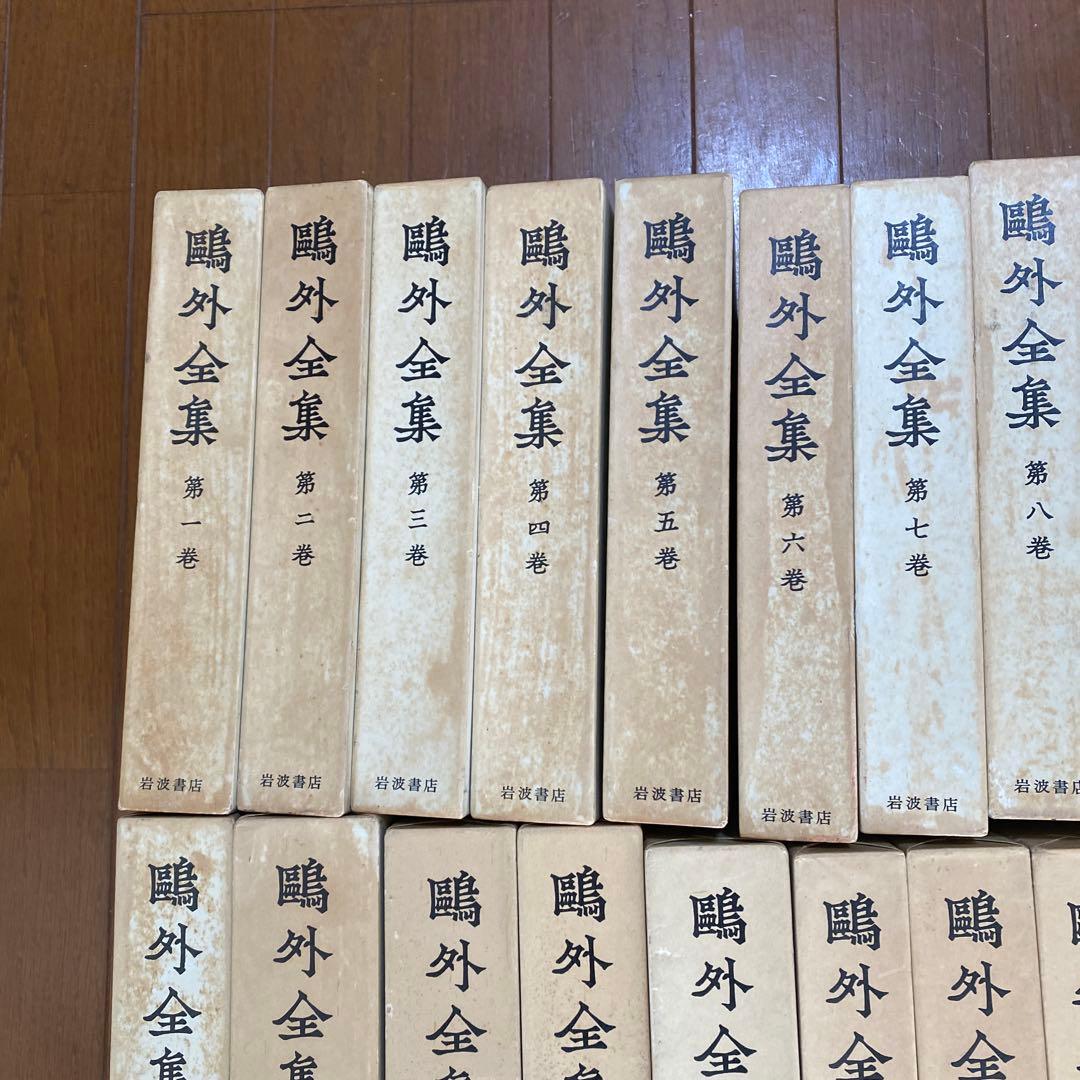 鷗外全集 第一巻 岩波書店
鷗外全集 第二巻 岩波書店
鷗外全集 第三巻 岩波書店
鷗外全集 第四巻 岩波書店
鷗外全集 第五巻 岩波書店
鷗外全集 第六巻 岩波書店
鷗外全集 第七巻 岩波書店
鷗外全集 第八巻 岩波書店
鷗外全集
鷗外全集
鷗外全集
鷗外全集
鷗外全
鷗外全
鷗外全